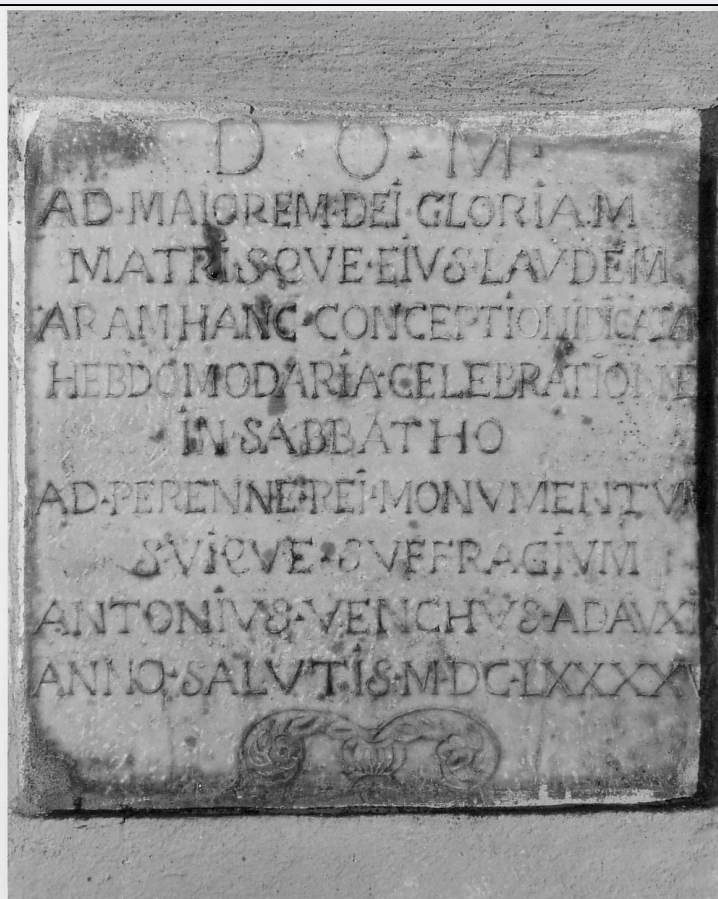 D · O · M ·
AD·MAIOREM·DEI·GLORIAM
MATRISQVE·EIVS·LAVDEM
ARAM HANC·CONCEPTIONI DICATA
HEBDOMODARIA·CELEBRATIONE
IN·SABBATHO
AD·PERENNE·REI·MONVMENTVM
SVIQVE·SVFFRAGIVM
ANTONIVS·VENCHVS·ADAVXI
ANNO·SALVTIS·M·DC·LXXXXV